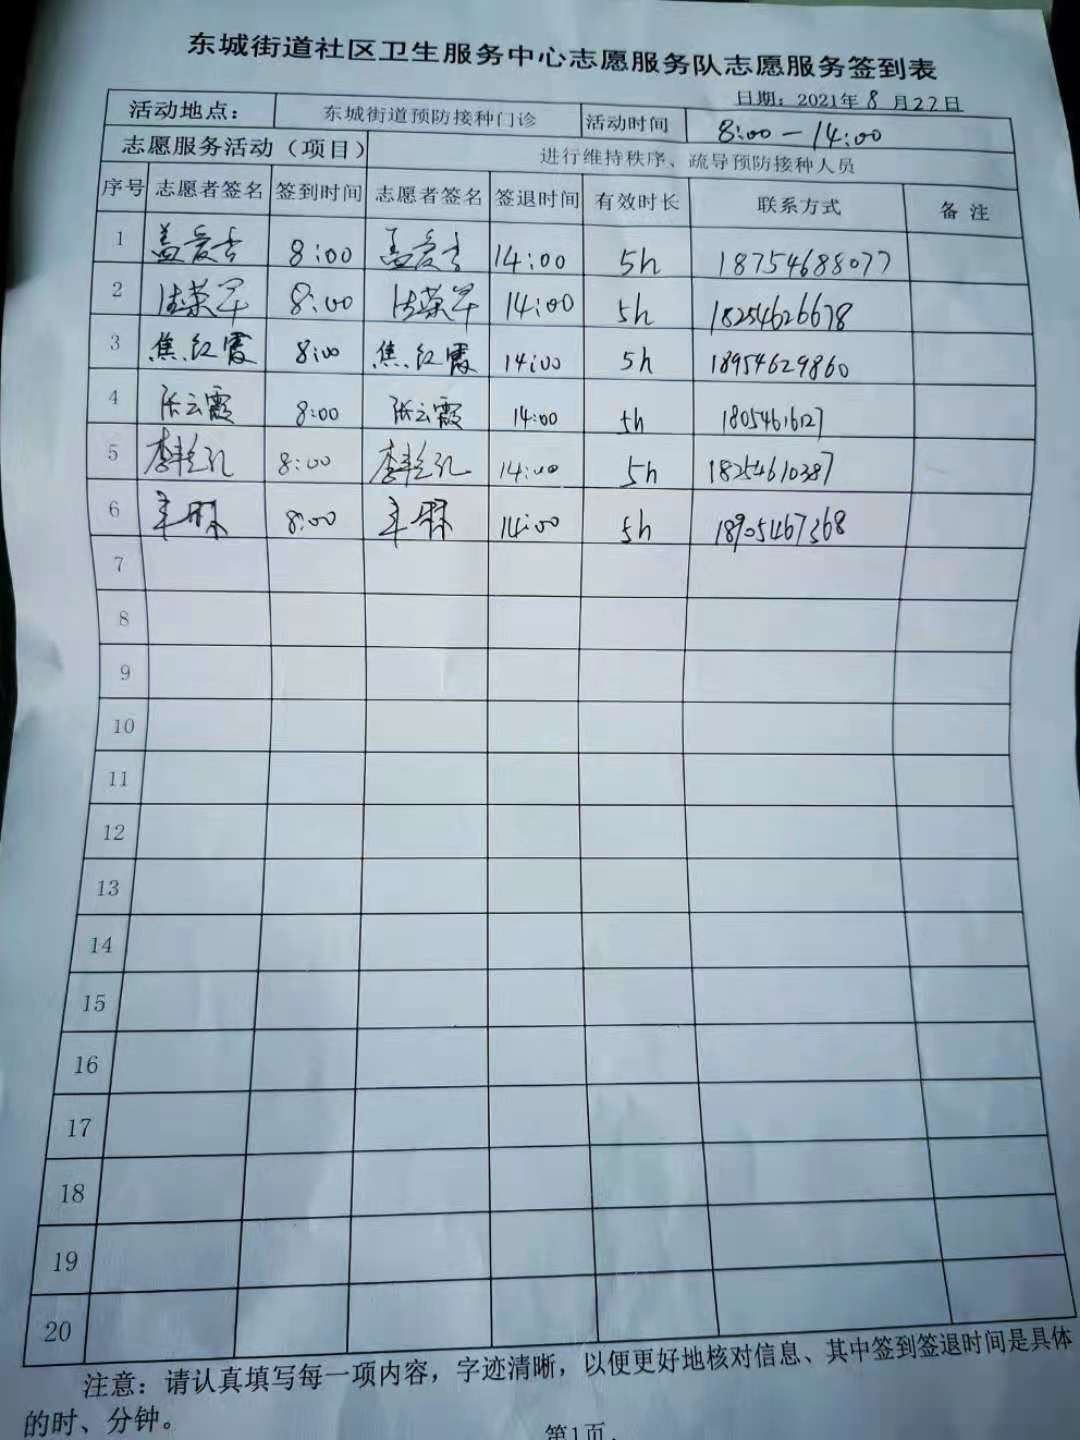 东城街道社区卫生服务中心志愿服务队志愿服务签到表
日期：2021年 8 月27日
活动地点： 东城街道预防接种门诊 活动时间 8:00-14:00
志愿服务活动（项目） 进行维持秩序、疏导预防接种人员
序号 志愿者签名 签到时间 志愿者签名 签退时间 有效时长 联系方式 备 注
1 盖爱吉 8:00 盖爱吉 14:00 5h 18754688077
2 8:00 14:00 5h 18254626678
3 焦红霞 8:00 焦红霞 14:00 5h 18954629860
4 张云霞 8:00 张云霞 14:00 5h
5 8:00 14:00 5h 18254610387
6 8:00 14:00 5h 18905467368
7
8
9
10
11
12
13
14
15
16
17
18
19
20
注意：请认真填写每一项内容，字迹清晰，以便更好地核对信息、其中签到签退时间是具体
的时、分钟。
第1页